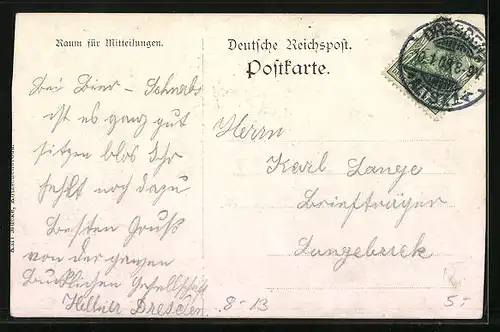 Raum für Mitteilungen.
Deutsche Reichspost.
Postkarte.
DRESDEN
Bei Bier – Schnaps
ist es ganz gut
sitzen blos Ihr
fehlt noch dazu
Besten Gruß
von der ganzen
Gesellschaft
Dresden
Herrn
Karl Lange
Briefträger
Langebrück
8-13
5-